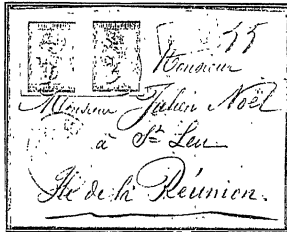 55
Monsieur
Monsieur Julien Noël
à St Leu
Ile de la Réunion.